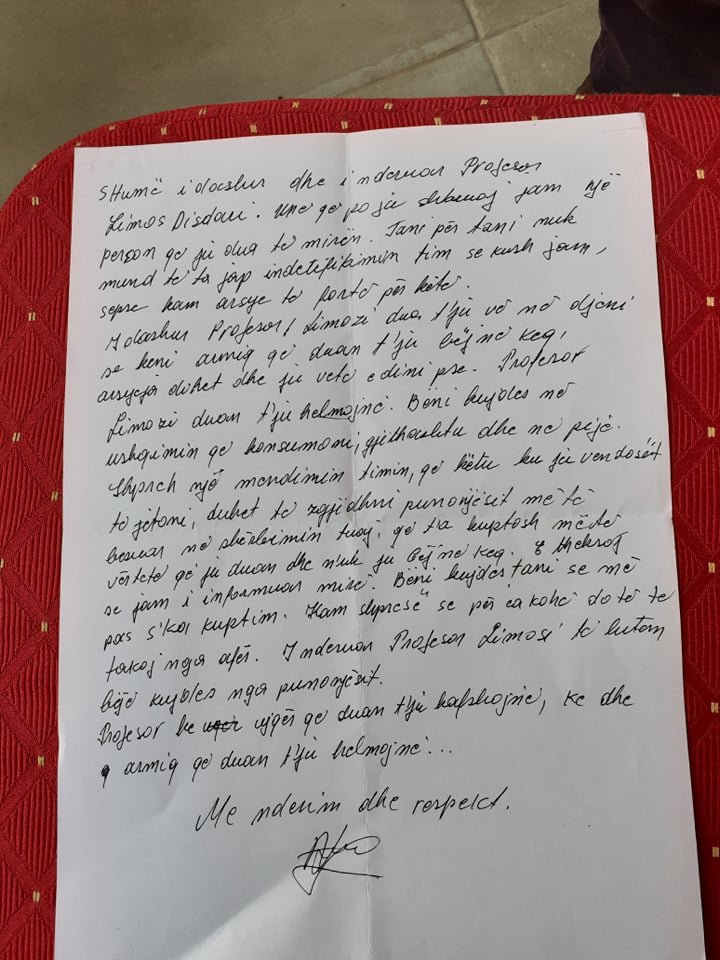 SHumë i dashur dhe i nderuar Profesor
Limos Disdari. Une qe po ju shkruaj jam një
person qe ju dua te mirën. Tani për tani nuk
mund te ta jap indetifikimin tim se kush jam,
sepse kam arsye te forte për këtë.
I dashur Profesor, Limozi dua t'ju vë në dijeni
se keni armiq qe duan t'ju bëjnë keq,
arsyeja duhet dhe ju vete e dini pse. Profesor
Limozi duan t'ju helmojnë. Bëni kujdes në
ushqimin qe konsumoni, gjithashtu dhe ne pije.
Shpreh një mendimin timin, qe këtu ku ju vendosët
të jetoni, duhet te zgjidhni punonjësit më të
besuar në shërbimin tuaj, qe ta kuptosh më të
vërtetë qe ju duan dhe n'uk ju bëjnë keq. E theksoj
se jam i informuar mirë. Bëni kujdes tani se më
pas s'ka kuptim. Kam shpresë se për ca kohë do të te
takoj nga afër. I nderuar Profesor Limosi të lutem
bëjë kujdes nga punonjësit.
Profesor ke ujqër qe duan t'ju kafshojnë, ke dhe
armiq qe duan t'ju helmojnë...
Me nderim dhe respekt.